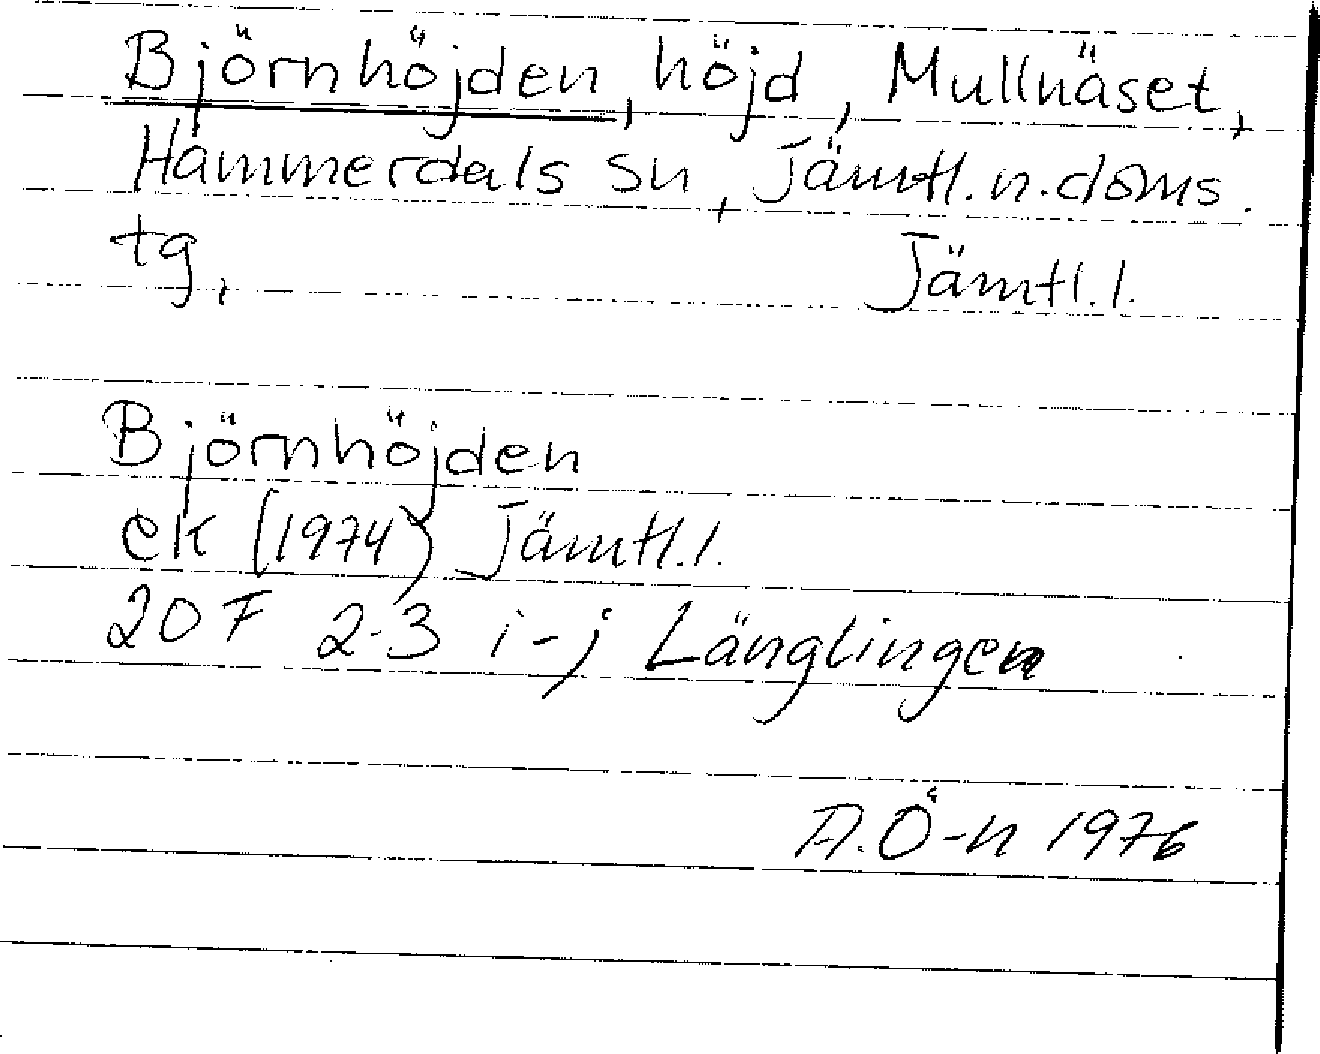 Björnhöjden, höjd, Mullnäset,
Hammerdals sn, Jämtl. n. doms.
tg, Jämtl. l.
Björnhöjden
ek (1974) Jämtl. l.
20 F 2-3 i-j Länglingen
A. Ö-n 1976